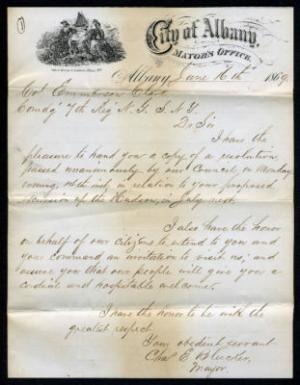 City of Albany,
MAYOR'S OFFICE,
Albany, June 16th 1869
Col Emmerson Clark
Comdg 7th Reg N. G. S. N. Y.
Dr Sir
I have the
pleasure to hand you a copy of a resolution
passed unanimously by our Council, on Monday
evening, inst, in relation to your proposed
excursion up the Hudson, in July next.
I also have the honor
on behalf of our citizens to extend to you and
your command an invitation to visit us; and
assure you that our people will give you a
cordial and hospitable welcome.
I have the honor to be with the
greatest respect
Your obedient servant
Chas E. Bleecker,
Mayor.